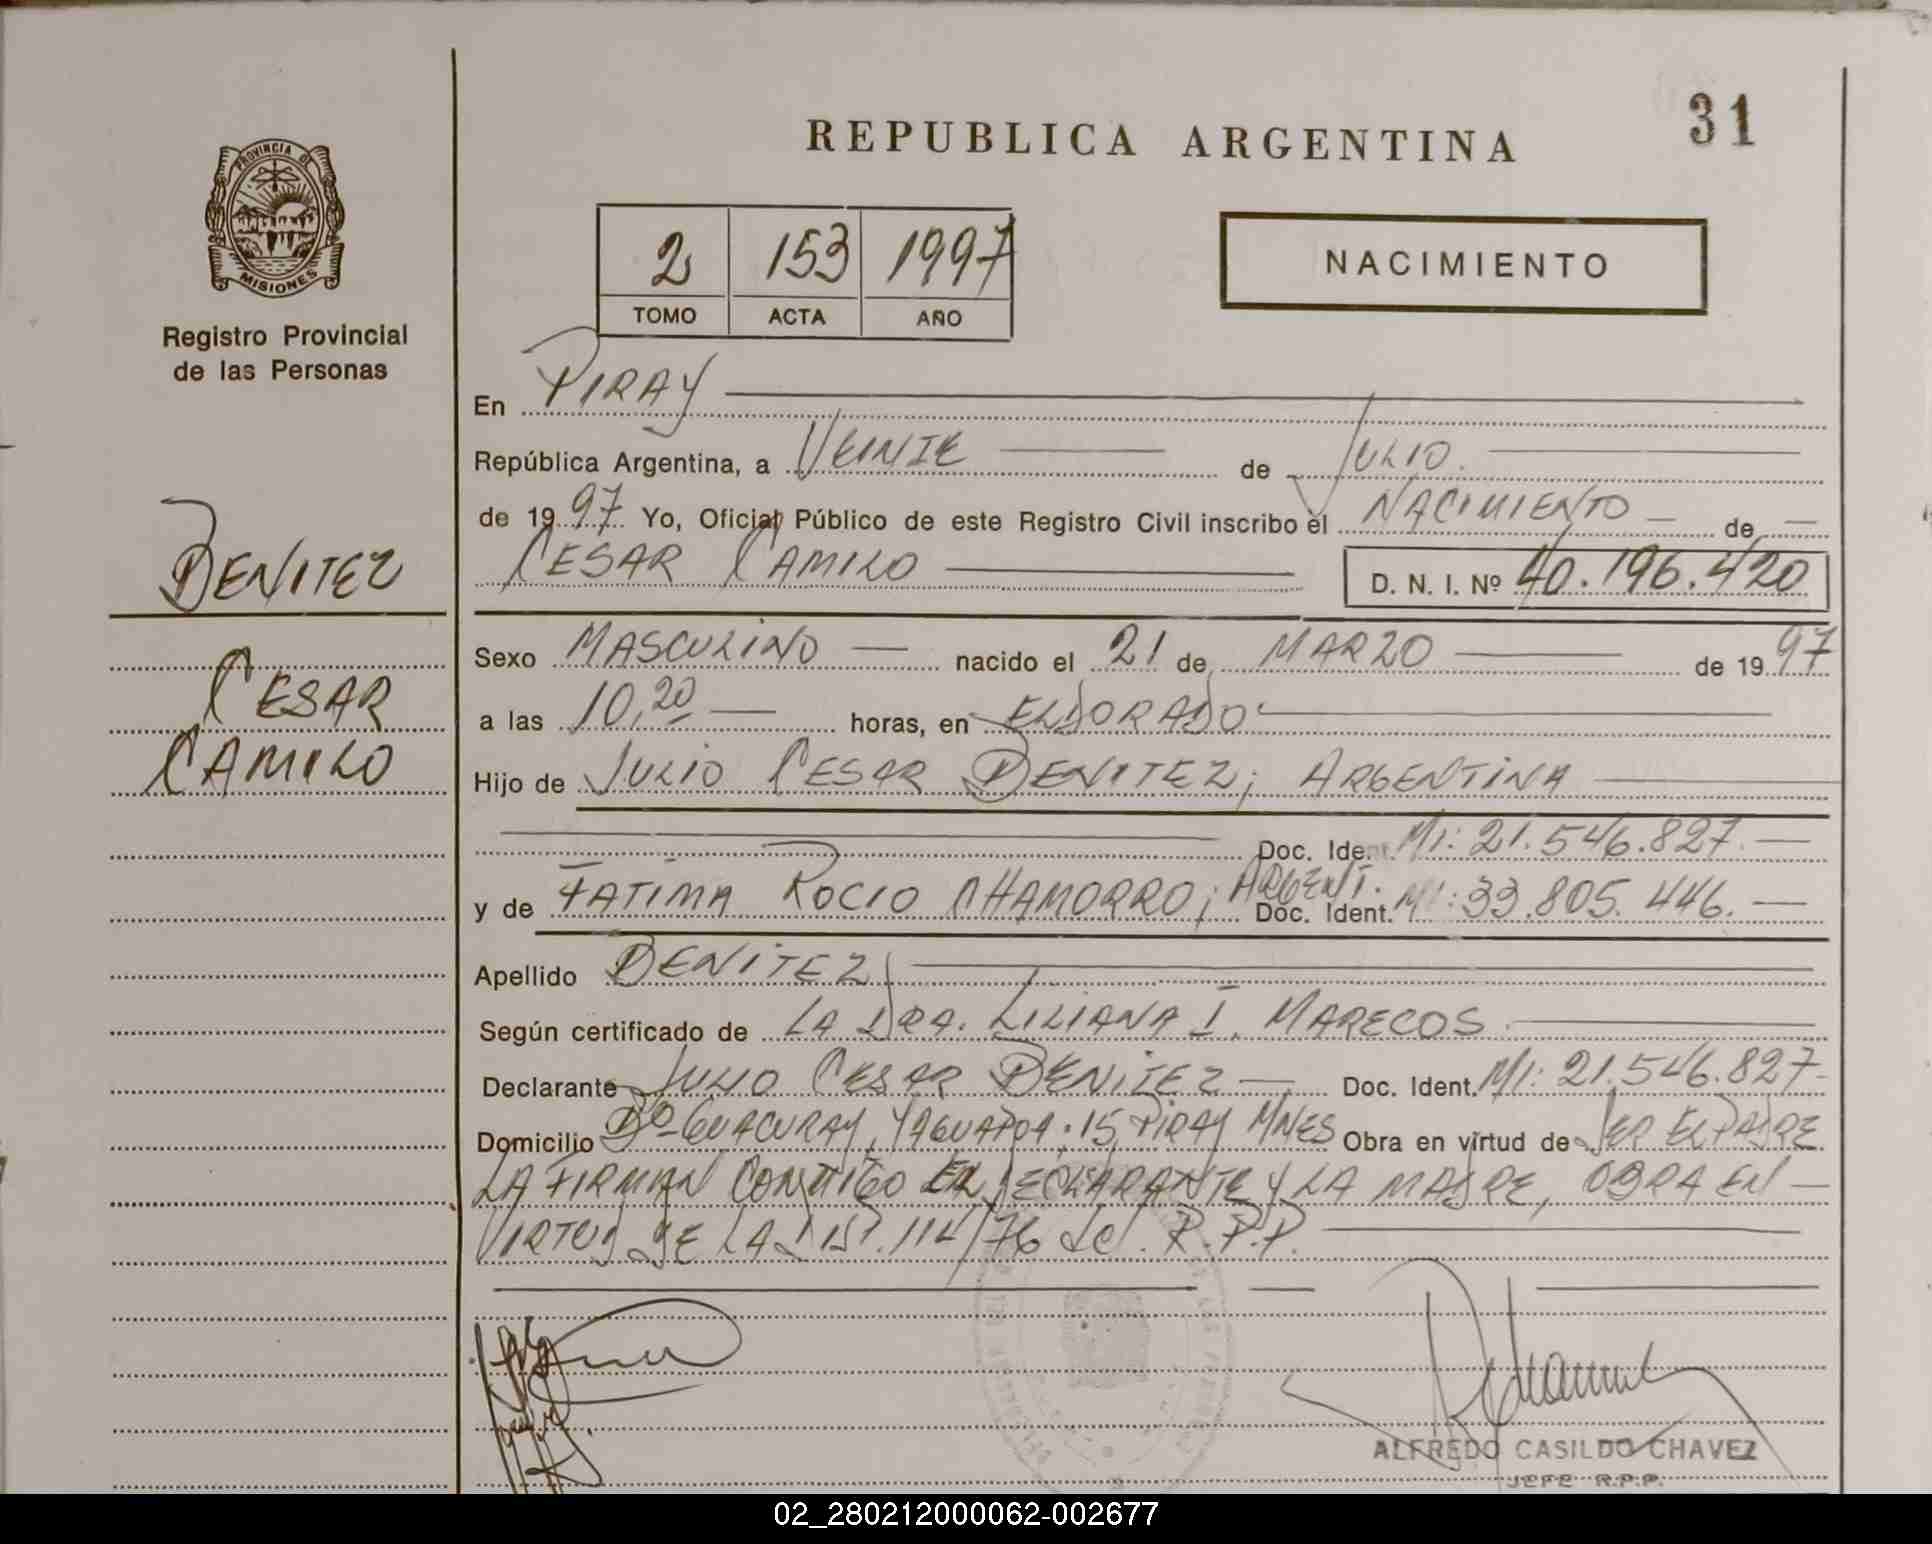 REPUBLICA ARGENTINA
31
PROVINCIA DE
MISIONES
Registro Provincial
de las Personas
2 153 1997
TOMO ACTA AÑO
NACIMIENTO
BENITEZ
CESAR
CAMILO
En PIRAY
República Argentina, a VEINTE de JULIO.
de 1997 Yo, Oficial Público de este Registro Civil inscribo el NACIMIENTO de
CESAR CAMILO D. N. I. Nº 40.196.420
Sexo MASCULINO nacido el 21 de MARZO de 1997
a las 10,20 horas, en ELDORADO
Hijo de JULIO CESAR BENITEZ; ARGENTINA
Doc. Ident. MI: 21.546.827.
y de FATIMA ROCIO CHAMORRO; ARGENT. Doc. Ident. MI: 33.805.446.
Apellido BENITEZ
Según certificado de LA DRA. LILIANA I. MARECOS
Declarante JULIO CESAR BENITEZ Doc. Ident. MI: 21.546.827
Domicilio Bº GUACURAY, 15, PIRAY MNES Obra en virtud de SER EL PADRE
LA FIRMAN CONMIGO EL DECLARANTE Y LA MADRE, OBRA EN
VIRTUD DE LA DISP. 114/76 R.P.P.
ALFREDO CASILDO CHAVEZ
JEFE R.P.P.
02_280212000062-002677